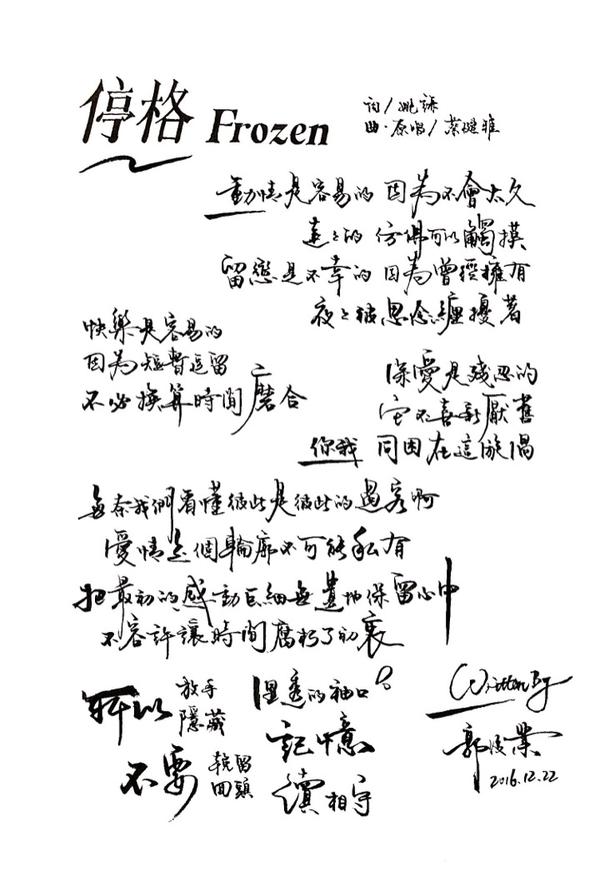 停格 Frozen
詞/姚謙
曲·原唱/蔡健雅
動情是容易的 因為不會太久
遠遠的 彷彿可以觸摸
留戀是不幸的 因為曾經擁有
夜夜被思念纏擾著
快樂是容易的
因為短暫逗留
不必換算時間磨合
深愛是殘忍的
它不喜新厭舊
你我 同困在這漩渦
無奈我們看懂彼此是彼此的過客啊
愛情是個輪廓不可能私有
把最初的感動巨細無遺地保留心中
不容許讓時間腐朽了初衷
所以 放手
隱藏
濕透的袖口
不要 輓留
回頭
記憶
續相守
Written By
郭俊業
2016.12.22